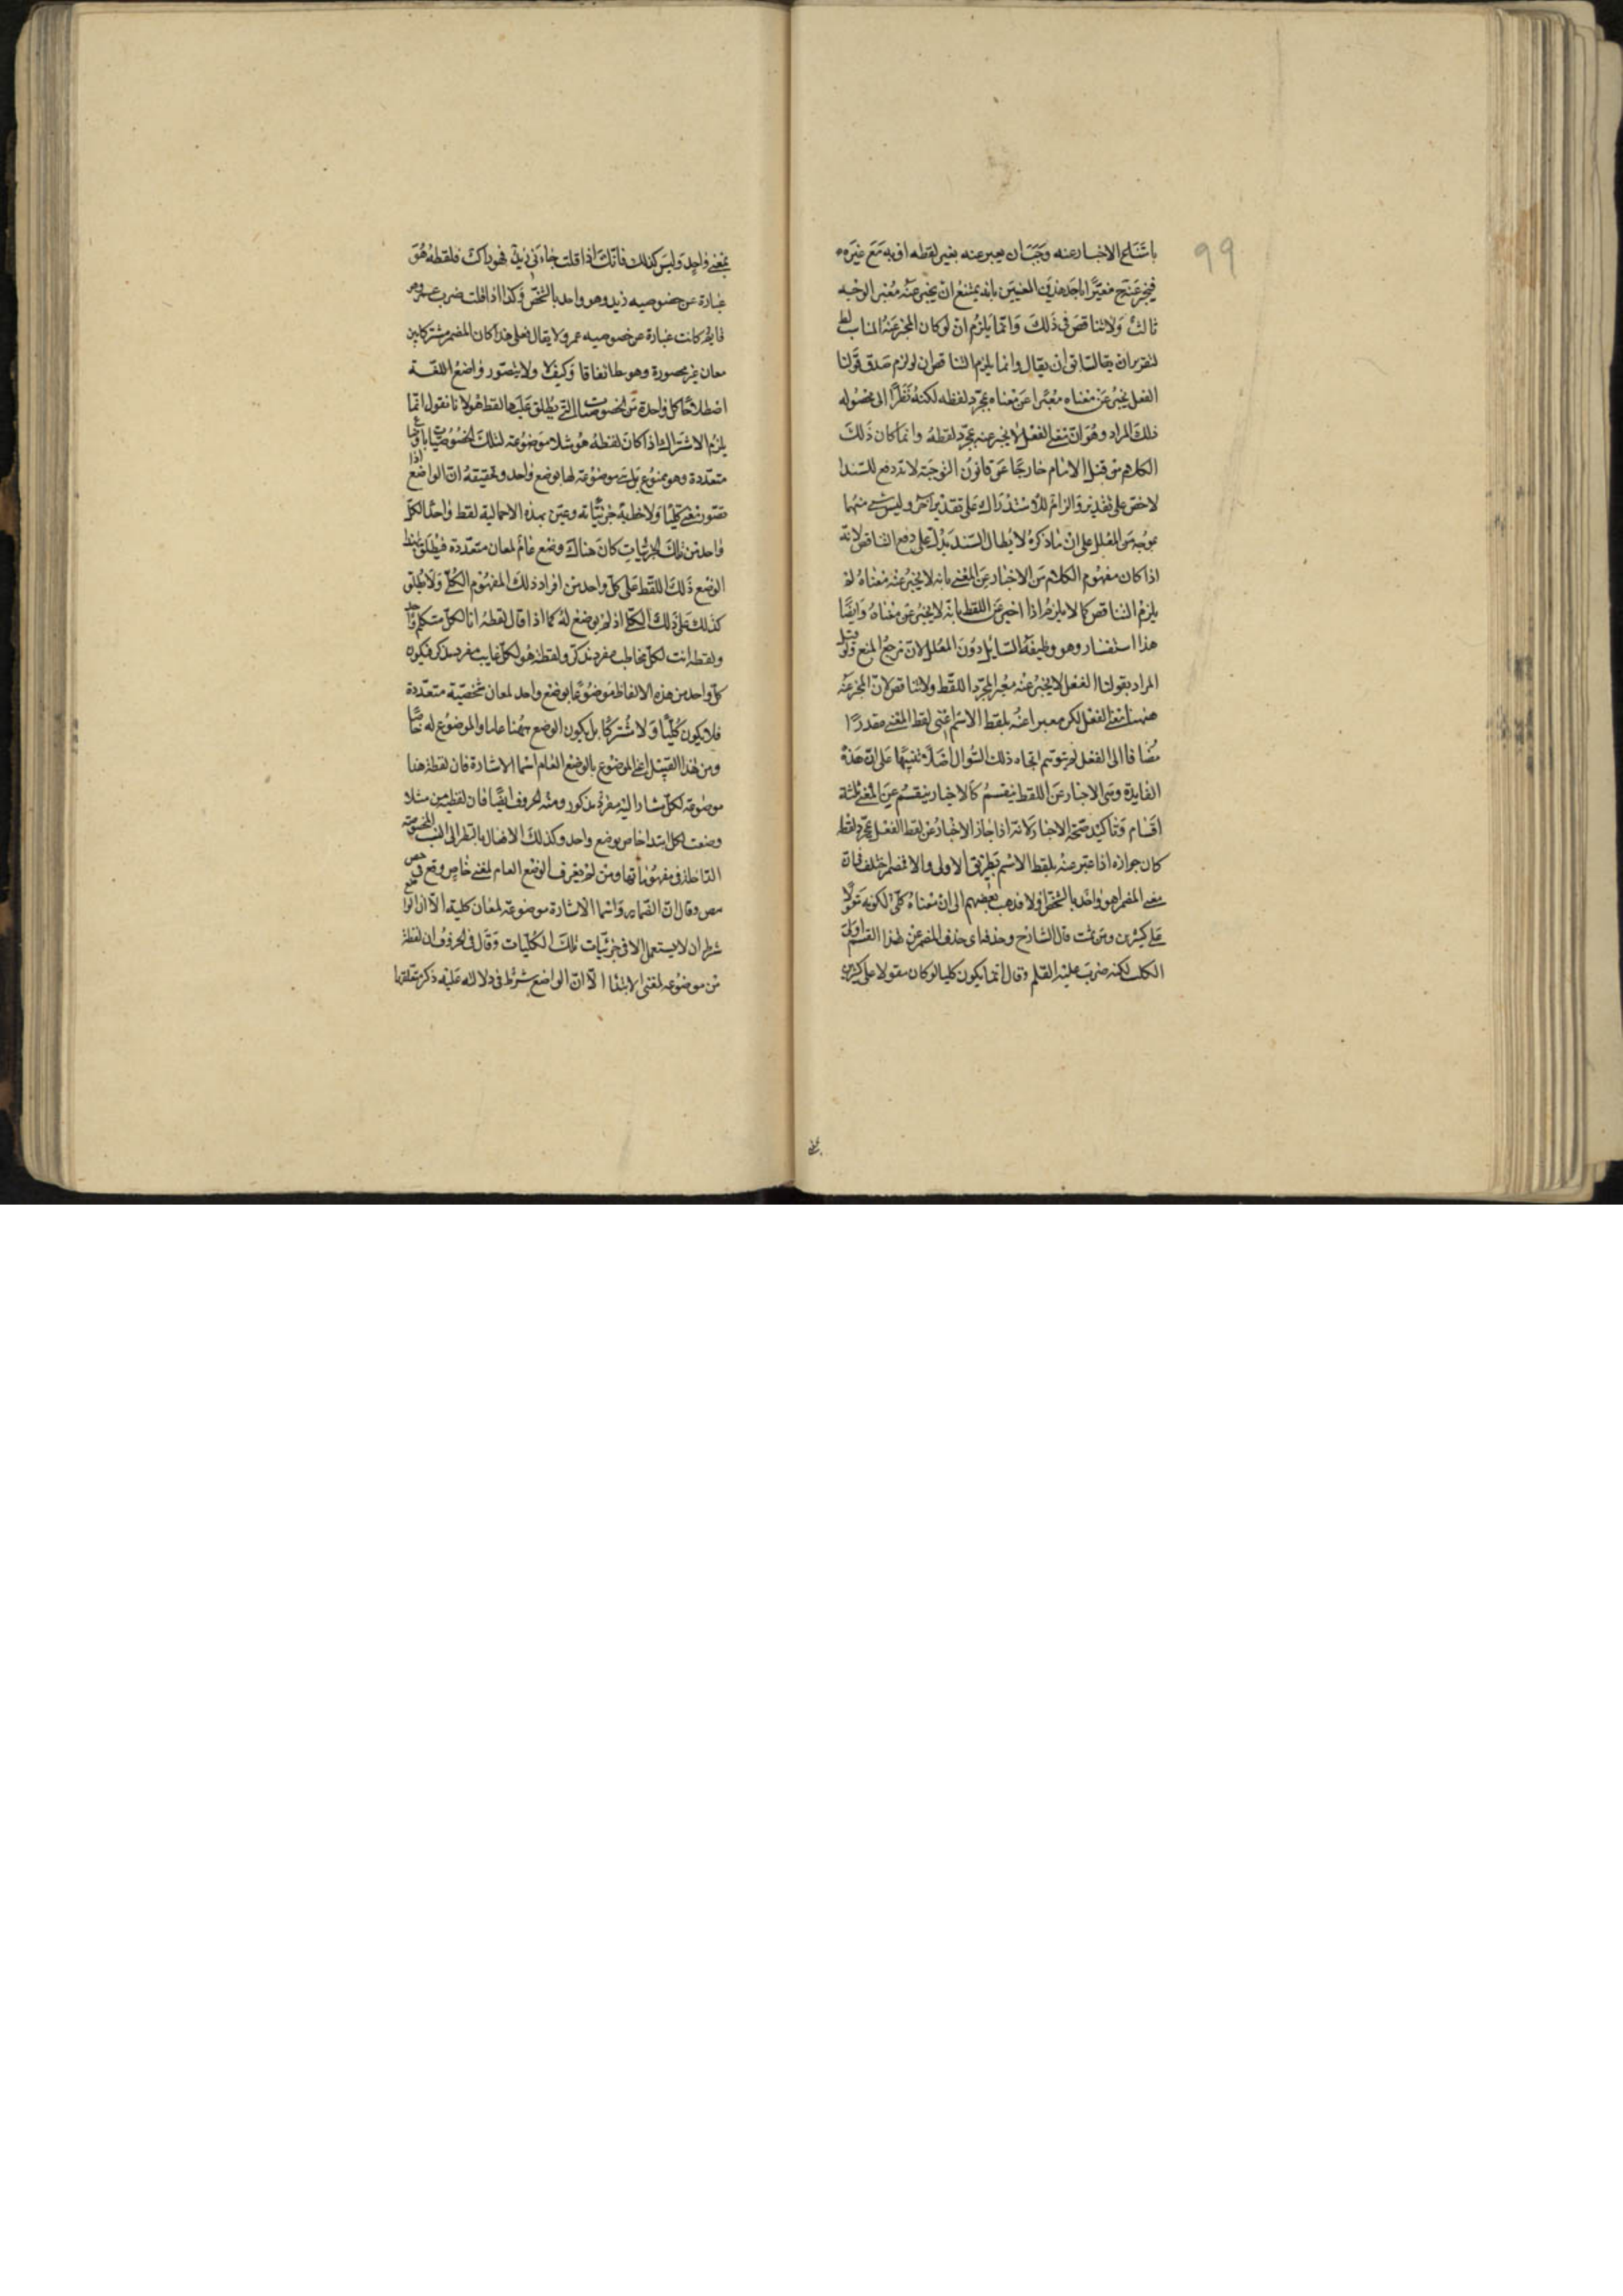 ٩٩
بامتناع الاخبار عنه وجب ان يعبر عنه بغير لفظه او به مع غيره
فيخبر عنه معبرا باحد هذين المعنيين بانه يمتنع ان يخبر عنه معبرا لوجه
ثالث ولا تناقض في ذلك وانما يلزم ان لو كان المخبر عنه المناسب
لتقرير ان يقال وانما يلزم التناقض ان لو لزم صدق قولنا
الفعل يخبر عن معناه معبرا عن معناه بمجرد لفظه لكنه نظرا الى محصوله
ذلك المراد وهو ان معنى الفعل لا يخبر عنه بمجرد لفظه وانما كان ذلك
الكلام من قبل الامام خارجا عن قانون التوجيه لانه دفع للسند
لاخص على تقدير والزام للاستدراك على تقدير آخر وليس شيء منهما
بموجه من المعلل على ان ما ذكره لابطال السند يدل على دفع التناقض لانه
اذا كان مفهوم الكلام من الاخبار عن المعنى بانه لا يخبر عنه معناه لم
يلزم التناقض كما لا يلزم اذا اخبر عن اللفظ بانه لا يخبر عن معناه وايضا
هذا استفسار وهو وظيفة السايل دون المعلل لان مرجع المنع ولو قيل
المراد بقولنا الفعل لا يخبر عنه معبرا بمجرد اللفظ ولا تناقض لان المخبر عنه
ههنا معنى الفعل لكن معبرا عنه بلفظ الاسم اعني لفظ المعنى مقدرا
مضافا الى الفعل لم يتوهم اتجاه ذلك السوال اصلا تنبيها على ان هذه
الفايدة وهي الاخبار عن اللفظ ينقسم كالاخبار ينقسم عن المعنى ثلثة
اقسام وتاكيد صحة الاخبار لانه اذا جاز الاخبار عن لفظ الفعل بمجرد لفظه
كان جوازه اذا عبر عنه بلفظ الاسم بطريق الاولى والا فمضمر اختلف في ان
معنى المضمر اهو واحد بالشخص اولا فذهب بعضهم الى ان معناه كلي لكونه مقولا
على كثيرين ومن ثمت قال الشارح وحذفنا اي حذف المضمر عن هذا القسم اولى
الكلت لكنه ضرب عليه القلم وقال انما يكون كليا لو كان مقولا على كثيرين
بمعنى
بمعنى واحد وليس كذلك فانك اذا قلت جاءني زيد فهو راكب فلفظه هو
عبارة عن خصوصيه زيد وهو واحد بالشخص وكذا اذا قلت ضرب عمرو وهو
قايم كانت عبارة عن خصوصيه عمرو لا يقال فعلى هذا كان المضمر مشتركا بين
معان غير محصورة وهو بط اتفاقا وكيف لا ولا يتصور واضع اللغة
اصطلاحا كل واحدة من الخصوصيات التي يطلق عليها لفظ هو لانا نقول انما
يلزم الاشتراك اذا كان لفظه هو مثلا موضوعة لتلك الخصوصيات باوضاع
متعددة وهو ممنوع بل هي موضوعة لها بوضع واحد وتحقيقه ان الواضع اذا
تصور معنى كليا ولاحظ به جزئياته وعين بهذه الاجمالية لفظا واحدا لكل
واحد من تلك الجزئيات كان هناك وضع عام لمعان متعددة فيطلق بحسب
الوضع ذلك اللفظ على كل واحد من افراد ذلك المفهوم الكلي ولا يطلق
كذلك على ذلك الكلي اذ لم يوضع له كما اذا قال لفظه انا لكل متكلم واحد
ولفظه انت لكل مخاطب مفرد مذكر ولفظه هو لكل غايب مفرد مذكر فيكون
كل واحد من هذه الالفاظ موضوعا بوضع واحد لمعان شخصية متعددة
فلا يكون كليا ولا مشتركا بل يكون الوضع ههنا عاما والموضوع له خاصا
ومن هذا القبيل اعني الموضوع بالوضع العام اسما الاشارة فان لفظة هذا
موضوعة لكل مشار اليه مفرد مذكور ومنه الحروف ايضا فان لفظة من مثلا
وضعت لكل ابتدا خاص بوضع واحد وكذلك الافعال بالنظر الى النسب المخصوصة
الداخلة في مفهوماتها ومن لم يعرف الوضع العام لمعنى خاص وقع في
وقال ان الضماير واسما الاشارة موضوعة لمعان كلية الا ان الواضع
شرط ان لا يستعمل الا في جزئيات تلك الكليات وقال في الحروف ان لفظة
من موضوعه لمعنى الابتدا الا ان الواضع شرط في دلالته عليه ذكر متعلقها